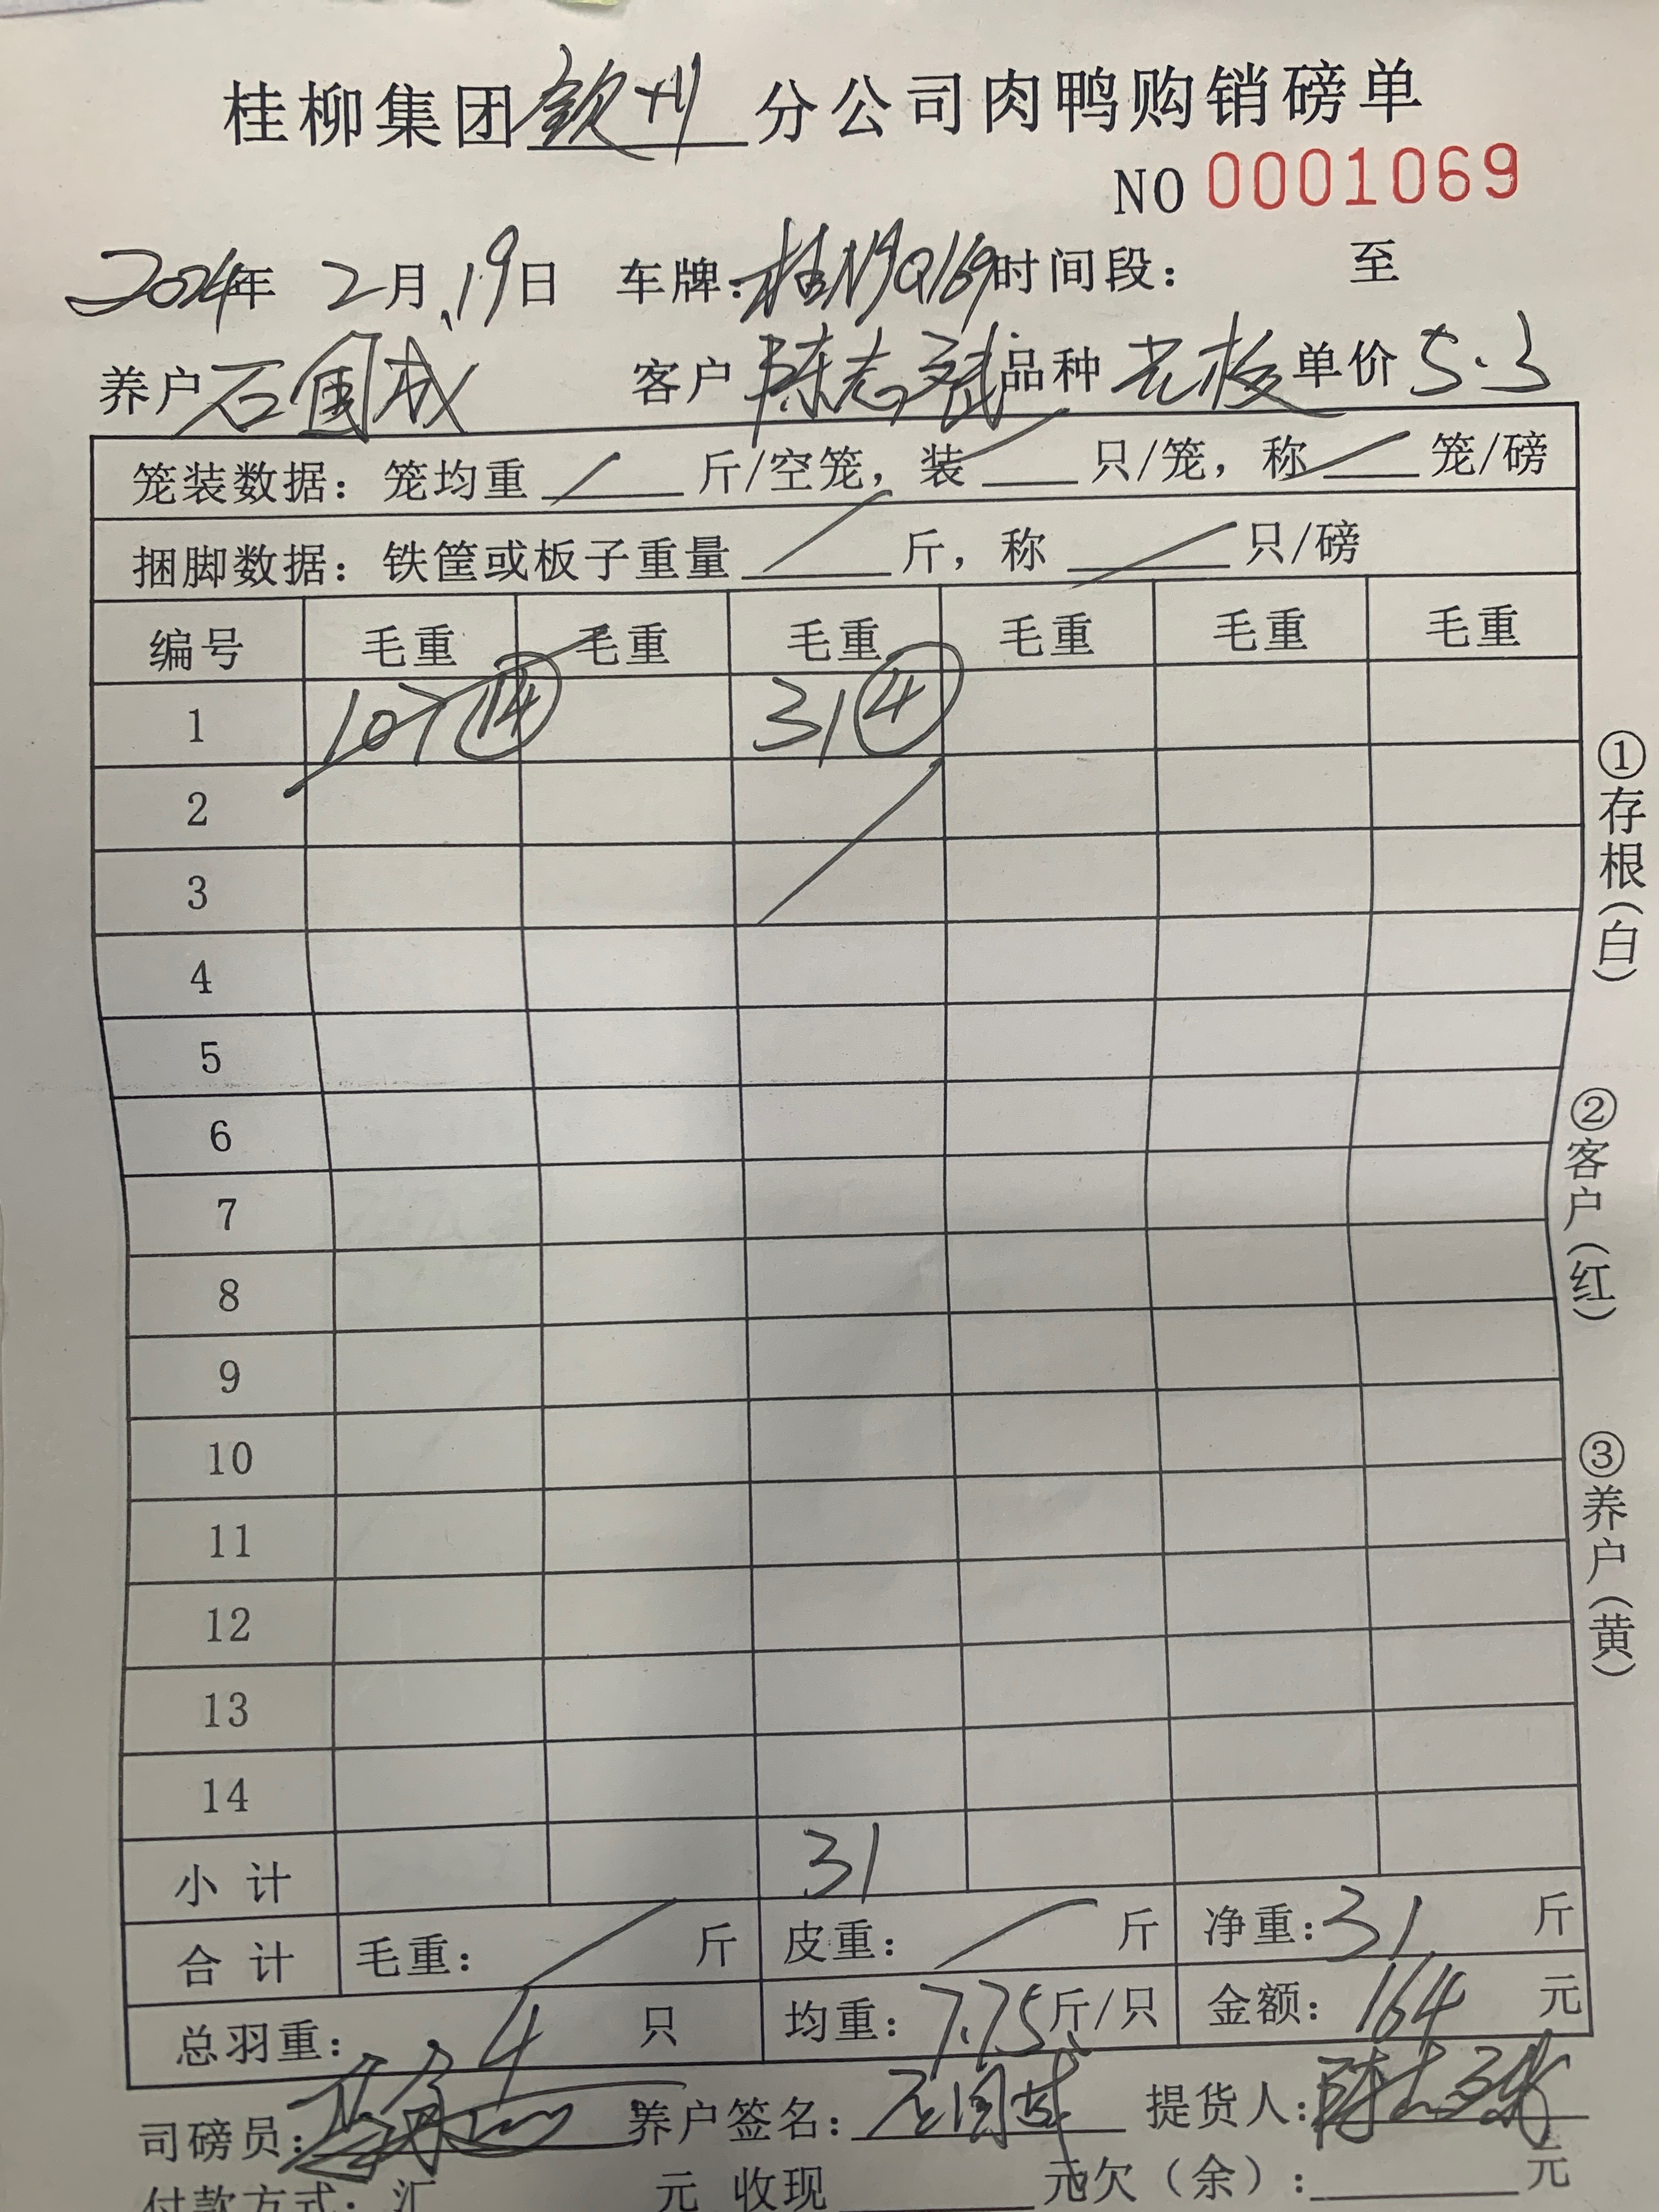 桂柳集团钦州分公司肉鸭购销磅单
NO 0001069
2024年 2月19日 车牌:桂N9Q169时间段: 至
养户石国成 客户陈志斌品种光板单价5.3
笼装数据: 笼均重 / 斤/空笼, 装 / 只/笼, 称 / 笼/磅
捆脚数据: 铁筐或板子重量 / 斤, 称 / 只/磅
编号 毛重 毛重 毛重 毛重 毛重 毛重
1 107 14 31 4
2
3
4
5
6
7
8
9
10
11
12
13
14
小计 31
合计 毛重: / 斤 皮重: / 斤 净重:31 斤
总羽重: 4 只 均重: 7.75斤/只 金额: 164 元
司磅员: 养户签名:石国成 提货人:陈志斌
付款方式: 汇 元 收现 元欠(余): 元
①存根(白)
②客户(红)
③养户(黄)